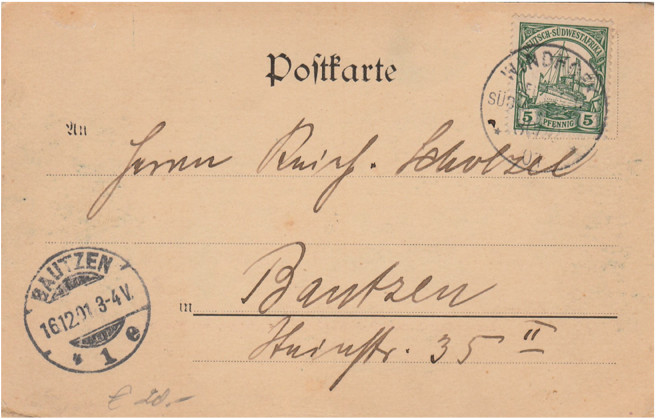 Postkarte
DEUTSCH-SÜDWESTAFRIKA
5 PFENNIG 5
WINDHOEK
An
Herrn Reich. Scholzel
BAUTZEN
16.12.01. 3-4 V.
* 1 e
in Bautzen
Steinstr. 35 II
€ 20.-